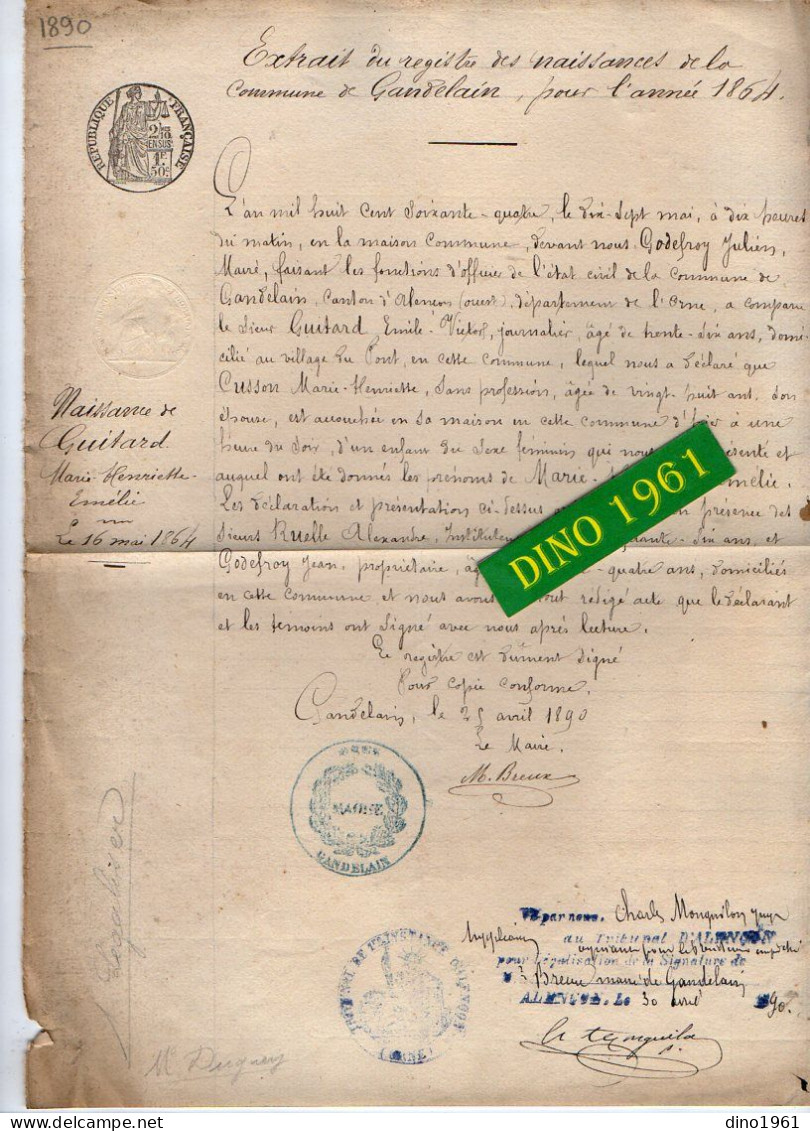 1890
Extrait du registre des naissances de la
Commune de Gandelain, pour l'année 1864.
RÉPUBLIQUE FRANÇAISE
2/10
EN SUS
1F
50c
L'an mil huit cent soixante-quatre, le dix-sept mai, à dix heures
du matin, en la maison commune, devant nous Godefroy Julien,
Maire, faisant les fonctions d'officier de l'état civil de la commune de
Gandelain, canton d'Alençon (ouest), département de l'Orne, a comparu
le sieur Guitard Emile-Victor, journalier, âgé de trente-six ans, domi-
cilié au village du Pont, en cette commune, lequel nous a déclaré que
Cusson Marie-Henriette, sans profession, âgée de vingt-huit ans, son
épouse, est accouchée en sa maison en cette commune d'hier à une
heure du soir, d'un enfant du sexe féminin qui nous présenté et
auquel ont été donnés les prénoms de Marie- mélie.
Les déclaration et présentation ci-dessus en présence des
sieurs Ruelle Alexandre, Instituteur ante-six ans, et
Godefroy Jean, propriétaire, âg -quatre ans, domiciliés
en cette commune et nous avons tout rédigé acte que le déclarant
et les témoins ont signé avec nous après lecture.
Le registre est dûment signé
Pour copie conforme,
Gandelain, le 25 avril 1890
Le Maire,
M. Breux
Naissance de
Guitard
Marie-Henriette-
Emélie
Le 16 mai 1864
DINO 1961
MAIRIE
GANDELAIN
Vu par nous, Charles Monguillon juge
suppléant au Tribunal D'ALENÇON
pour légalisation de la Signature de
Mr Breux maire de Gandelain
ALENÇON, Le 30 avril 1890.
TRIBUNAL DE 1ère INSTANCE D'ALENÇON
(ORNE)
Mr Duguey
dino1961